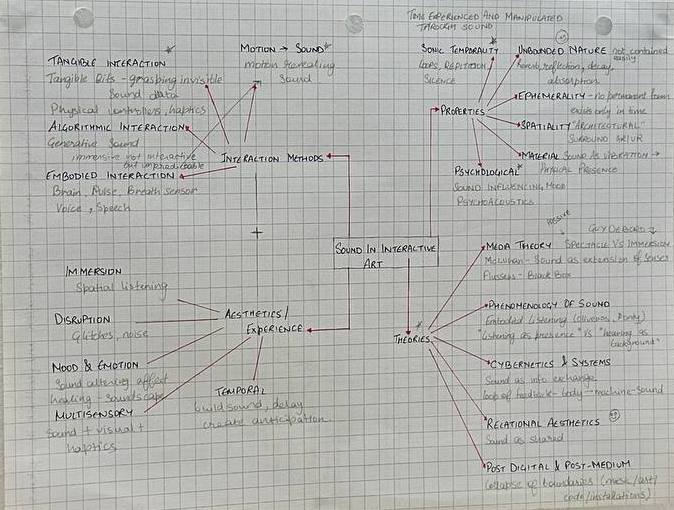 TIME EXPERIENCED AND MANIPULATED
THROUGH SOUND
TANGIBLE INTERACTION
Tangible Bits - grasping invisible
Sound data
Physical controllers, haptics
ALGORITHMIC INTERACTION
Generative Sound
immersive not interactive
but unpredictable
EMBODIED INTERACTION
Brain, Pulse, Breath sensor
Voice, Speech
MOTION → SOUND
motion revealing
Sound
INTERACTION METHODS
SONIC TEMPORALITY
LOOPS, REPITITION
SILENCE
UNBOUNDED NATURE not contained
easily
reverb, reflection, decay,
absorption
EPHEMERALITY - no permanent form
exists only in time
PROPERTIES
SPATIALITY "ARCHITECTURAL"
SURROUND
MATERIAL SOUND AS VIBRATION →
PHYSICAL PRESENCE
PSYCHOLOGICAL
SOUND INFLUENCING MOOD
PSYCHOACOUSTICS
SOUND IN INTERACTIVE
ART
IMMERSION
Spatial listening
DISRUPTION
Glitches, noise
MOOD & EMOTION
Sound altering affect
healing - soundscape
MULTISENSORY
Sound + visual +
haptics
AESTHETICS/
EXPERIENCE
TEMPORAL
build sound, delay
create anticipation
THEORIES
passive
GUY DEBORD
MEDIA THEORY SPECTACLE VS IMMERSION
McLuhan - Sound as extension of senses
Flussers - Black Box
PHENOMENOLOGY OF SOUND
Embodied Listening (Oliveros, Ponty)
"listening as presence" VS "hearing as
background"
CYBERNETICS & SYSTEMS
Sound as info exchange
loop of feedback - body - machine - sound
RELATIONAL AESTHETICS
Sound as shared
POST DIGITAL & POST-MEDIUM
Collapse of boundaries (music/art/
code/installations)